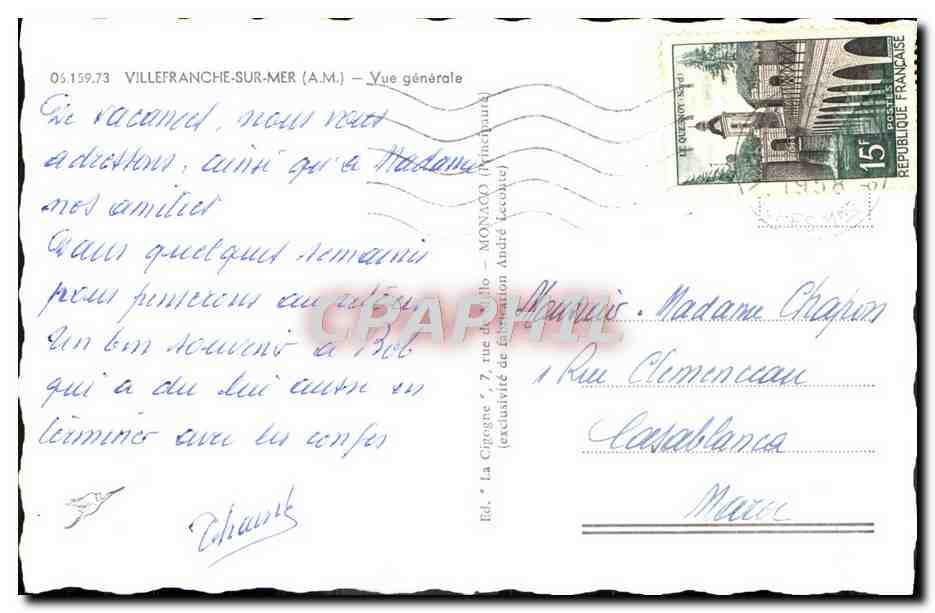 06.159.73 VILLEFRANCHE-SUR-MER (A.M.) — Vue générale
De vacances, nous vous
adressons, ainsi qu'à Madame
nos amitiés
Dans quelques semaines
nous penserons au retour
Un bon souvenir à Bob
qui a du lui aussi en
terminer avec les
Ed. "La Cigogne", 7, rue de — MONACO (Principauté)
(exclusivité de fabrication André Leconte)
LE QUESNOY (Nord)
15F
POSTES
REPUBLIQUE FRANÇAISE
1958
Monsieur. Madame Chapon
1 Rue Clemenceau
Casablanca
Maroc
CPAPHIL